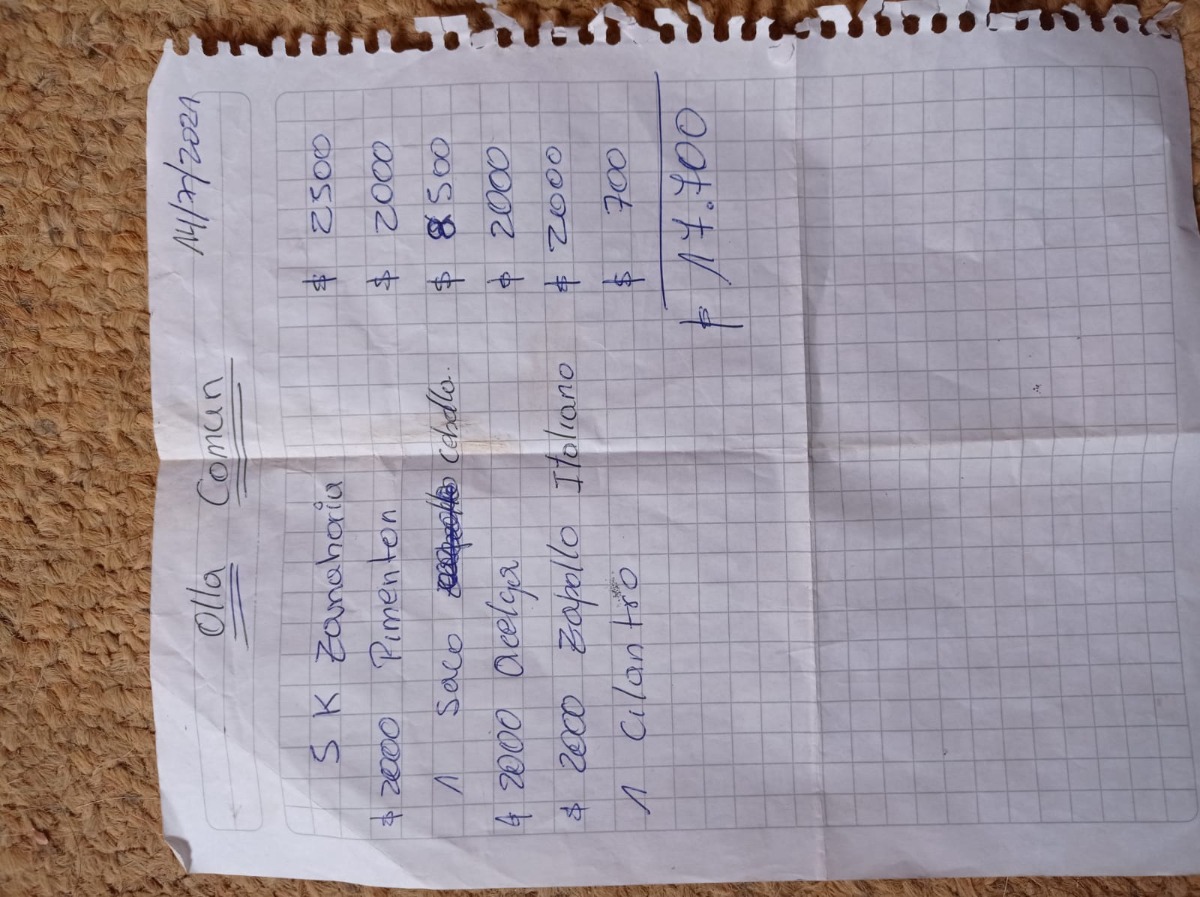 Olla Comun 14/7/2021
5 K Zanahoria $ 2500
$ 2000 Pimenton $ 2000
1 Saco Cebolla. $ 8500
$ 2000 Acelga $ 2000
$ 2000 Zapallo Italiano $ 2000
1 Cilantro $ 700
$ 17.700